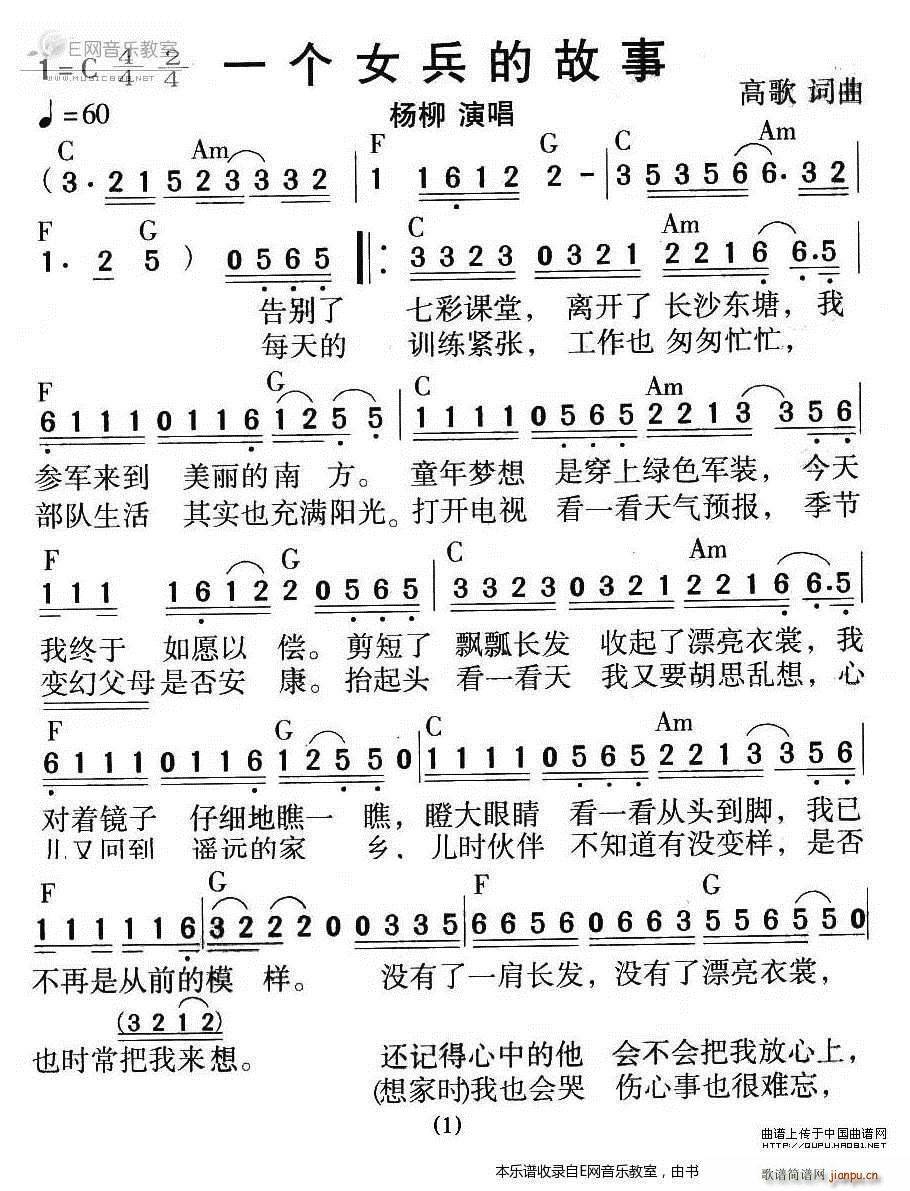 E网音乐教室
WWW.MUSIC8O1.NET
1=C 4/4 2/4
一个女兵的故事
高歌 词曲
♩=60
杨柳 演唱
C Am F G C Am
(3·215233332 1 1612 2- 3535666·32
F G C Am
1·25) 0565 ‖: 3323 0321 2216 6·5
告别了 七彩课堂，离开了 长沙东塘，我
每天的 训练紧张，工作也 匆匆忙忙，
F G C Am
6111 0116 1255 1111 0565 2213 3356
参军来到 美丽的南 方。童年梦想 是穿上绿色军装，今天
部队生活 其实也充满阳光。打开电视 看一看天气预报，季节
F G C Am
111 1612 2 0565 3323 0321 2216 6·5
我终于 如愿以 偿。剪短了 飘瓢长发 收起了漂亮衣裳，我
变幻父母是否安 康。抬起头 看一看天 我又要胡思乱想，心
F G C Am
6111 0116 12550 1111 0565 2213 3356
对着镜子 仔细地瞧一 瞧，瞪大眼睛 看一看从头到脚，我已
儿又回到 遥远的家 乡，儿时伙伴 不知道有没变样，是否
F G F G
111 116 322220 0335 6656 0663 5565 550
不再是从前的模 样。 没有了一肩长发，没有了漂亮衣裳，
(3212)
也时常把我来想。 还记得心中的他 会不会把我放心上，
(想家时)我也会哭 伤心事也很难忘，
(1)
曲谱上传于中国曲谱网
HTTP://QUPU.HAO81.NET
本乐谱收录自E网音乐教室，由书
歌谱简谱网
jianpu.cn